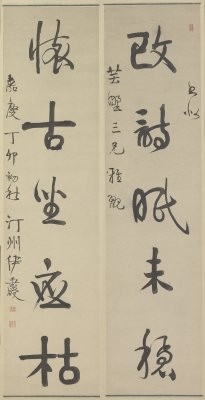 書似
改詩眠未穩
三兄雅
懷古坐應枯
嘉慶丁卯初 汀州伊秉綬